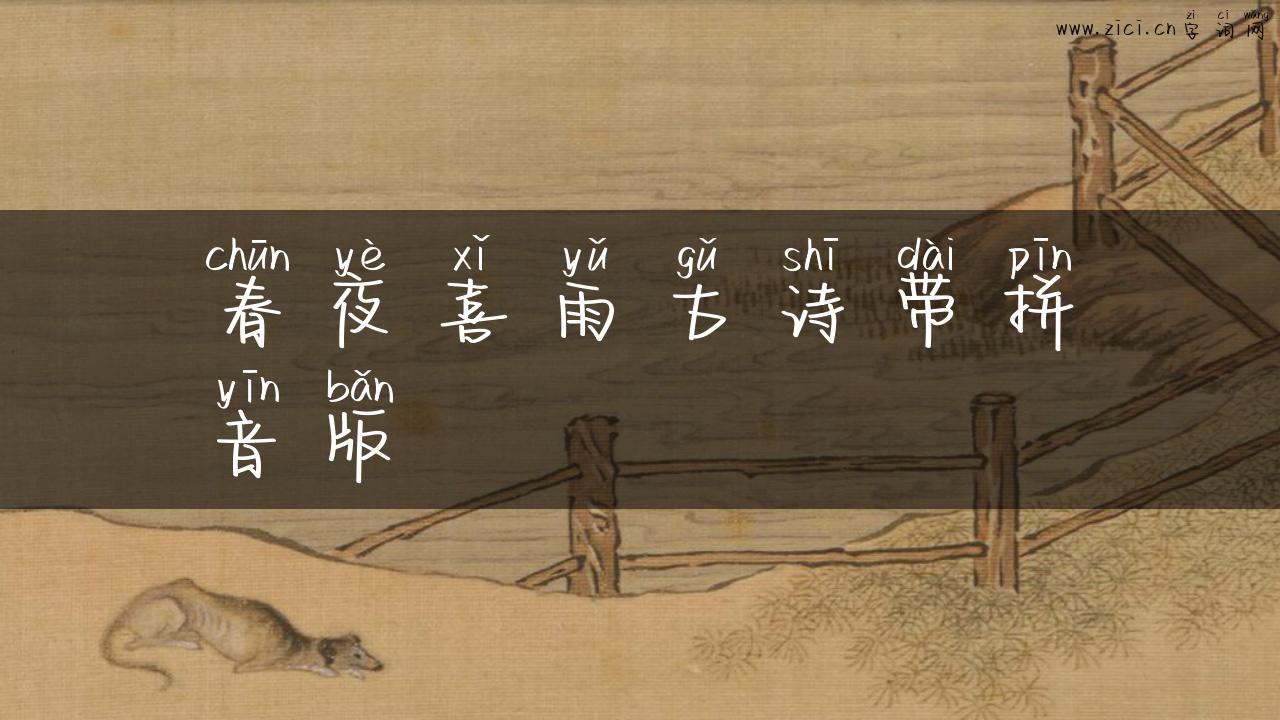 zì cí wǎng
www.zici.cn 字词网
chūn yè xǐ yǔ gǔ shī dài pīn
春夜喜雨古诗带拼
yīn bǎn
音版